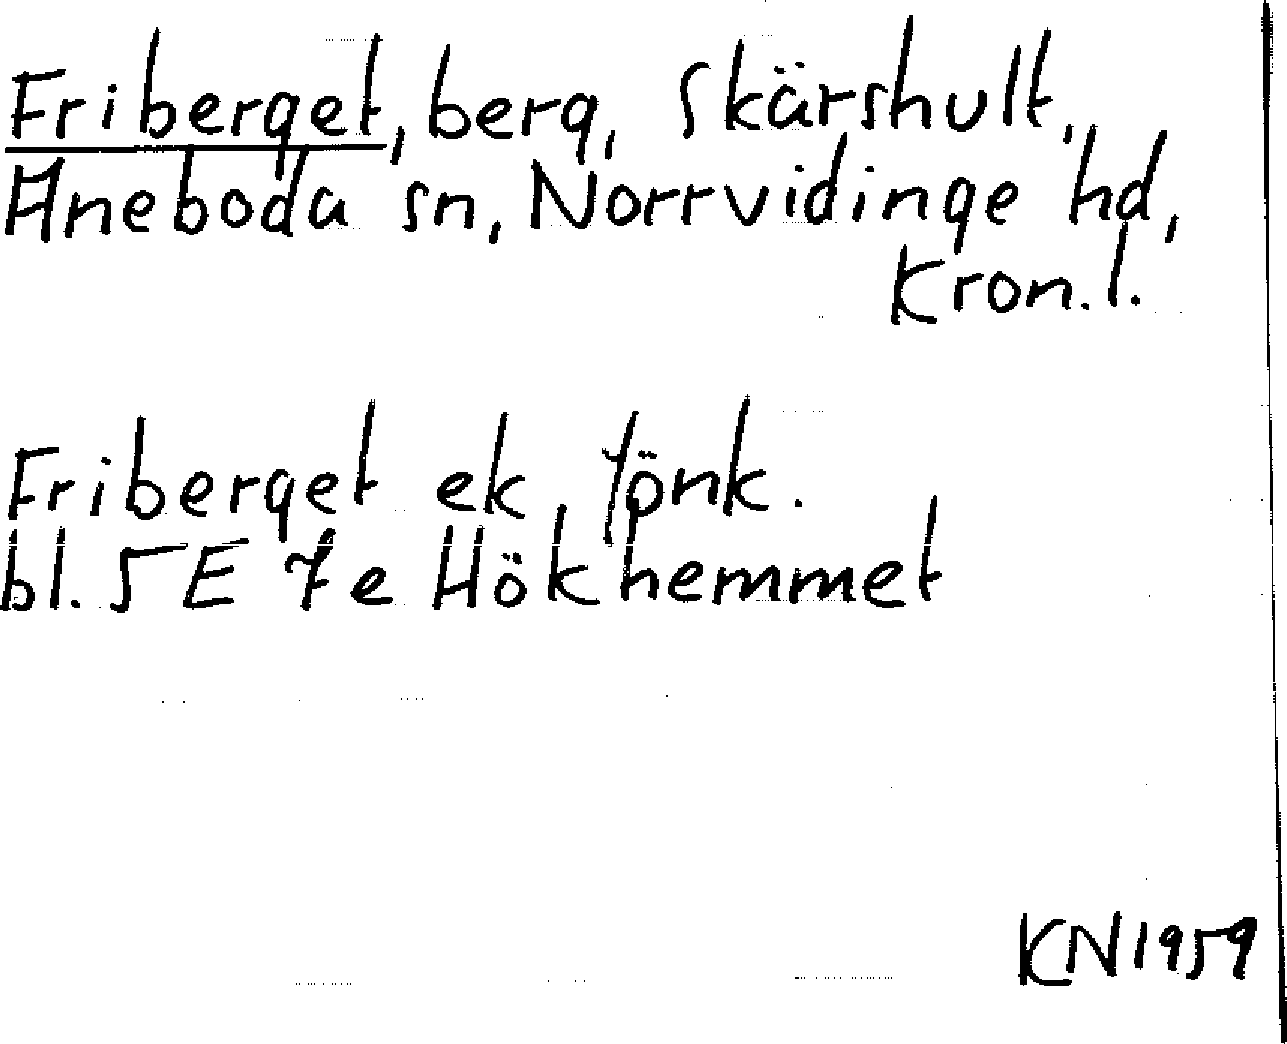 Friberget, berg, Skärshult,
Aneboda sn, Norrvidinge hd,
Kron.l.
Friberget ek, Jönk.
bl. 5E 7e Hökhemmet
KN1959